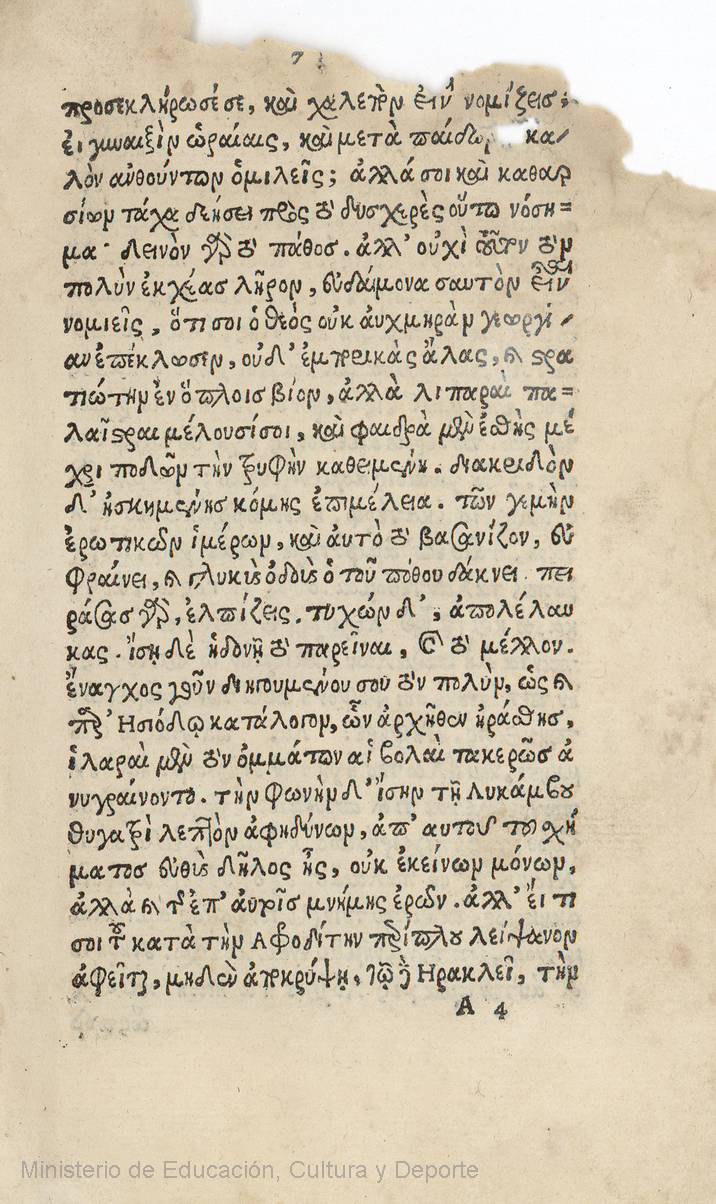 7
προσεκλήρωσέ σε, καὶ χαλεπὸν εἶν νομίζεις;
εἰ γυναιξὶν ὡραίαις, καὶ μετὰ παίδων κα/
λὸν ἀνθούντων ὁμιλεῖς; ἀλλά σοι καὶ καθαρ
σίων τάχα δεήσει πρὸς τὸ δυσχερὲς οὕτω νόση=
μα· δεινὸν γὰρ τὸ πάθος. ἀλλ' οὐχὶ τοῦτον τὸν
πολὺν ἐκχέας λῆρον, εὐδαίμονα σαυτὸν εἶναι
νομιεῖς, ὅτι σοι ὁ θεὸς οὐκ αὐχμηρὰν γεωργί/
αν ἐπέκλωσεν, οὐδ' ἐμπορικὰς ἄλας, ἢ στρα
τιώτην ἐν ὅπλοισ βίον, ἀλλὰ λιπαραὶ πα=
λαῖστραι μέλουσί σοι, καὶ φαιδρὰ μὲν ἐσθὴς μέ
χρι ποδῶν τὴν τρυφὴν καθειμένη. διακειδὸν
δ' ἠσκημένης κόμης ἐπιμέλεια. τῶν γε μὴν
ἐρωτικῶν ἱμέρων, καὶ αὐτὸ τὸ βασανίζον, εὐ
φραίνει, καὶ γλυκὺς ὀδοὺς ὁ τοῦ πόθου δάκνει. πει
ράσας γὰρ, ἐλπίζεις. τυχὼν δ', ἀπολέλαυ
κας. ἴση δὲ ἡδονὴ τὸ παρεῖναι, καὶ τὸ μέλλον.
ἔναγχος γοῦν διηγουμένου σου τὸν πολὺν, ὡς καὶ
παρ' Ἡσιόδῳ κατάλογον, ὧν ἀρχῆθεν ἠράσθης,
ἱλαραὶ μὲν τῶν ὀμμάτων αἱ βολαὶ τακερῶσ ἀ
νυγραίνοντο. τὴν φωνὴν δ' ἴσην τῇ Λυκάμβου
θυγατρὶ λεπτὸν ἀφηδύνων, ἀπ' αὐτοῦ τοῦ σχή
ματος εὐθὺς δῆλος ἦς, οὐκ ἐκείνων μόνων,
ἀλλὰ καὶ τῆς ἐπ' αὐταῖς μνήμης ἐρῶν. ἀλλ' εἴ τι
σοι τοῦ κατὰ τὴν Ἀφροδίτην περίπλου λείψανον
ἀφεῖται, μηδὲν ἀποκρύψῃ, τῷ δὲ Ἡρακλεῖ, τὴν
A 4
Ministerio de Educación, Cultura y Deporte